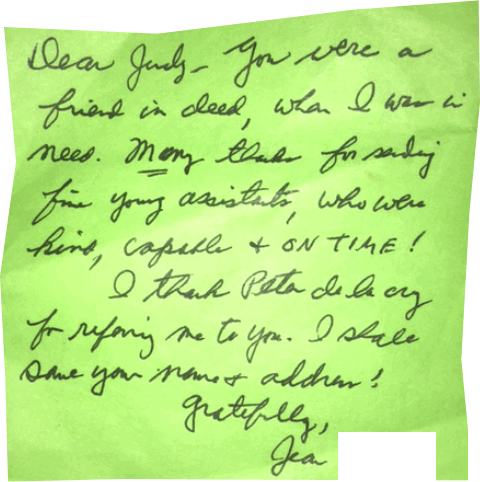 Dear Judy - You were a
friend in deed, when I was in
need. Many thanks for sending
fine young assistants, who were
kind, capable + ON TIME!
I thank Peter de la cruz
for refering me to you. I shall
save your name + address!
Gratefully,
Jean